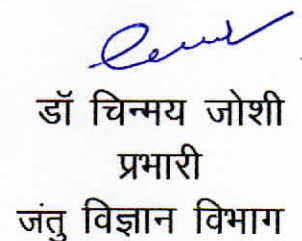 डॉ चिन्मय जोशी
प्रभारी
जंतु विज्ञान विभाग